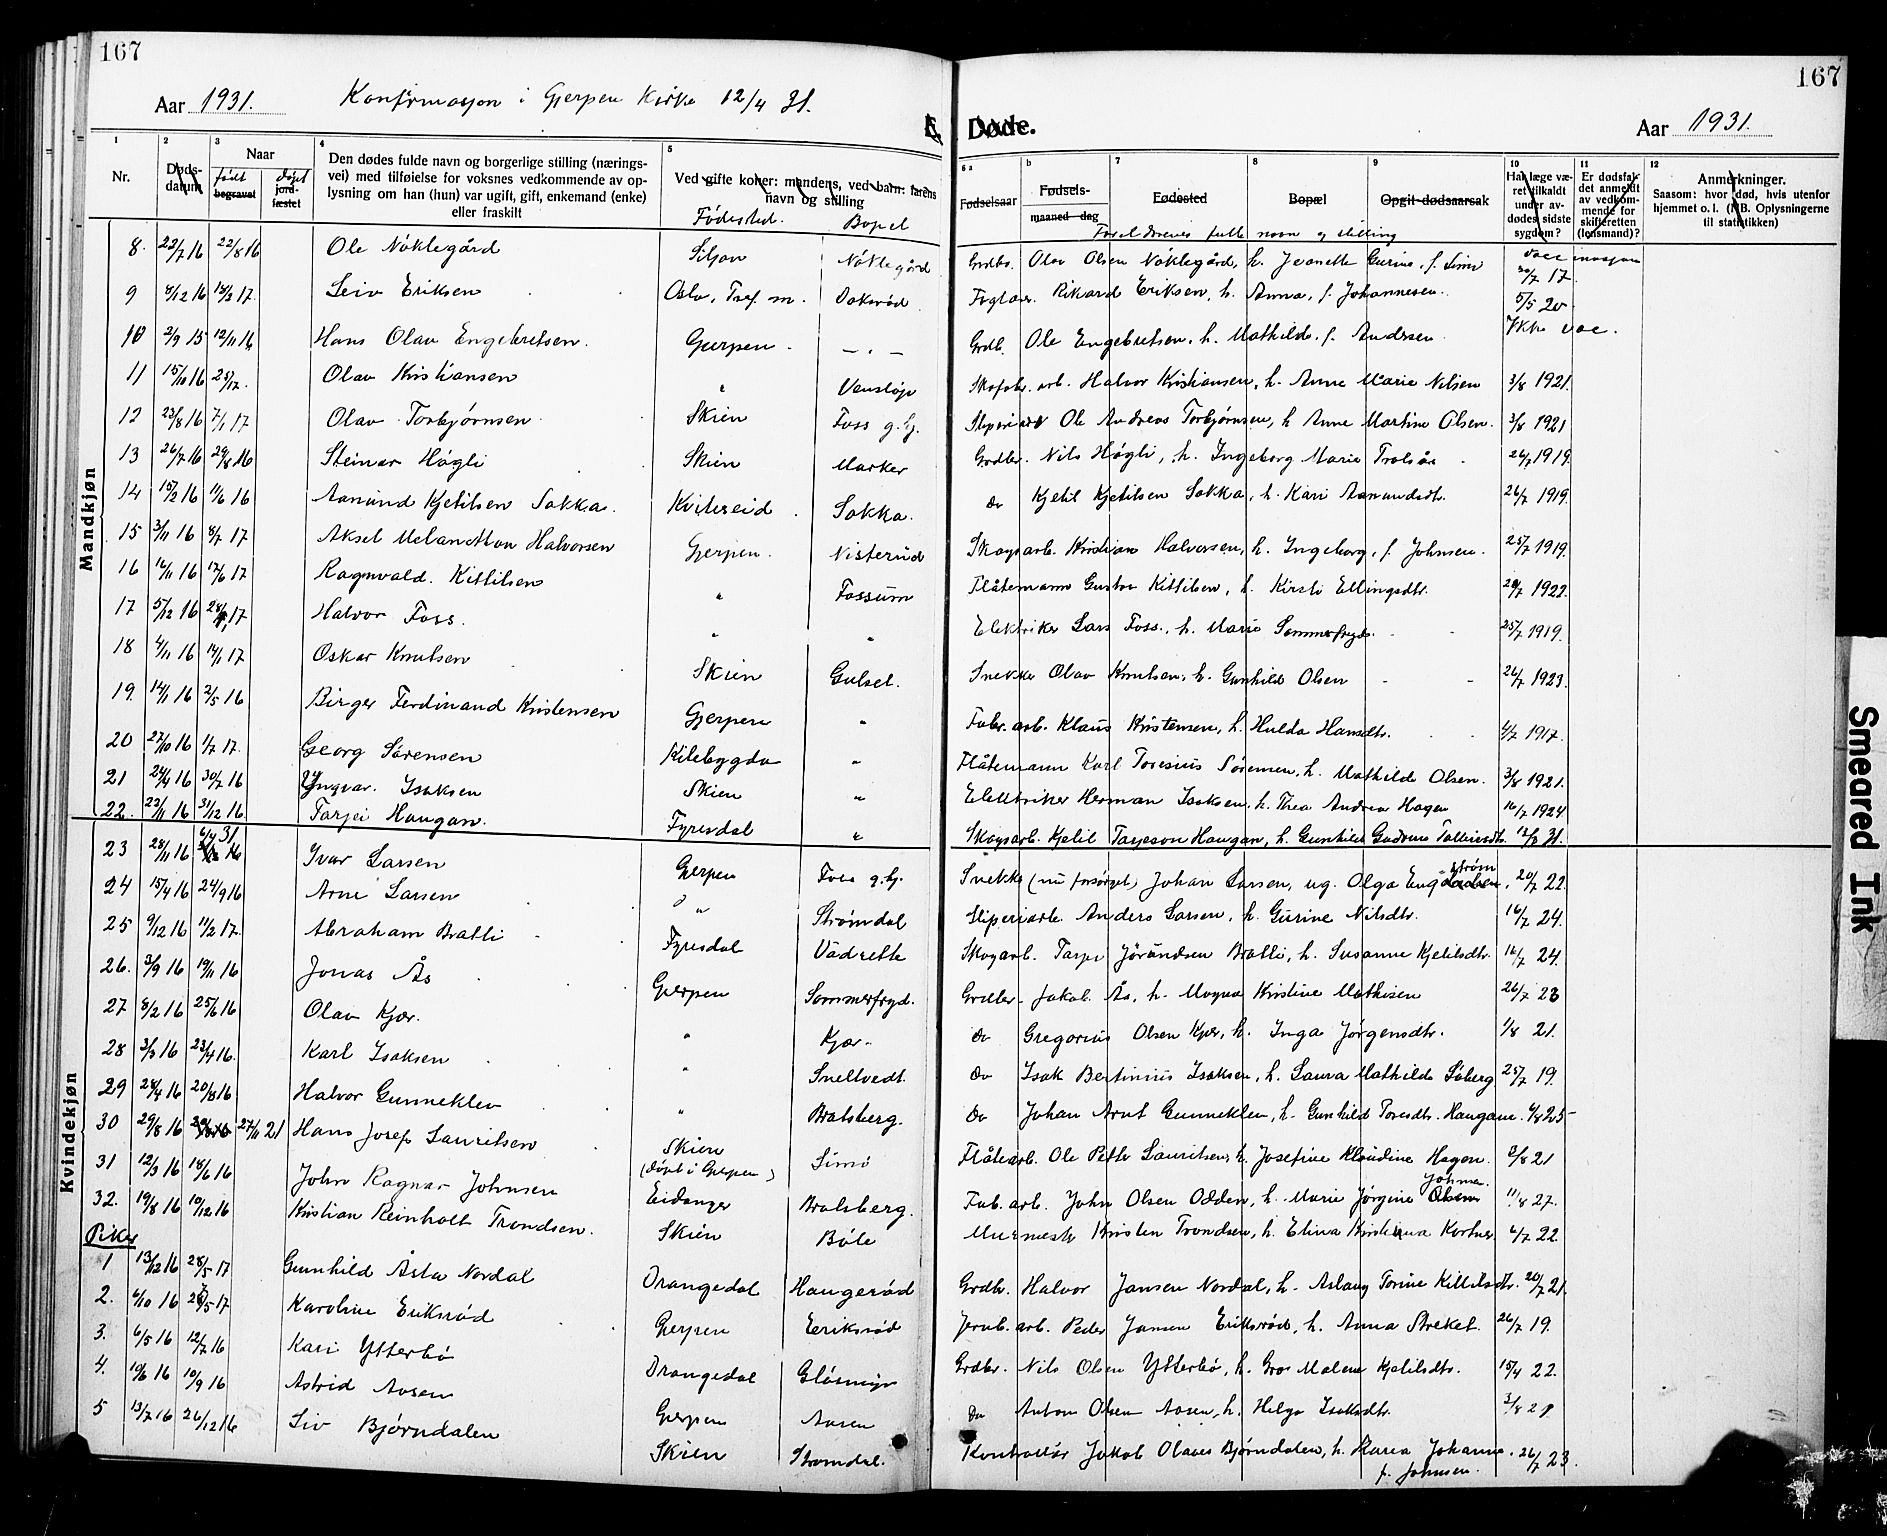 167
Aar 1931.
Konfirmasjon i Gjerpen Kirke 12/4 31.
E.
Mandkjøn
Kvindekjøn
1 2 3 4 5
Nr. Døds-datum Naar født begravet døpt jord-fæstet
Den dødes fulde navn og borgerlige stilling (nærings-
vei) med tilføielse for voksnes vedkommende av op-
lysning om han (hun) var ugift, gift, enkemand (enke)
eller fraskilt
Ved gifte koner: mandens, ved barn: farens
navn og stilling
Fødested. Bopel
8. 23/7 16 22/8 16 Ole Nöklegård Siljan Nöklegård
9 8/12 16 18/3 17. Leiv Eriksen Oslo, Tref m. Doksrød
10 2/9 15 12/11 16 Hans Olav Engebretsen. Gjerpen - — " —
11 15/10 16 25/ 17. Olav Kristiansen " Venstøp
12 23/8 16 7/1 17 Olav Torbjørnsen Skien Foss g.hj.
13 26/7 16 29/8 16 Steinar Høgli Skien Marker
14 15/2 16 11/6 16 Aanund Kjetilsen Sakka. Kviteseid Sakka.
15 3/11 16 8/7 17 Aksel Melanchton Halvorsen Gjerpen. Nisterud
16 16/11 16 17/6 17 Ragnvald. Kittilsen " Fossum
17 5/12 16 28/ 17 Halvor Foss. " "
18 4/11 16 14/1 17 Oskar Knutsen Skien Gulset.
19. 14/11 16 2/5 16 Birger Ferdinand Kristensen Gjerpen "
20 27/10 16 1/7 17. Georg Sørensen Kilebygda "
21 24/4 16 30/7 16 Yngvar. Isaksen Skien "
22. 23/11 16 31/12 16 Tarjei Haugan. Fyresdal "
23 28/11 16 6/4 31 Ivar Larsen Gjerpen Foss g.hj.
24 15/4 16 24/9 16 Arne Larsen " Strømdal
25 9/12 16 11/2 17. Abraham Bratli Fyresdal Vadrette
26. 3/9 16 19/11 16 Jonas Ås Gjerpen Sommerfryd.
27 8/2 16 25/6 16 Olav Kjær. " Kjær.
28 3/3 16 23/4 16. Karl Isaksen " Snelltvedt.
29 28/4 16 20/8 16 Halvor Gunneklev " Bratsberg.
30 29/8 16 27/11 21 Hans Josef Lauritsen Skien (døpt i Gjerpen) Limi
31 12/3 16 18/6 16 John Ragnar Johnsen Eidanger Bratsberg.
32. 19/8 16 10/12 16 Kristian Reinholt Trondsen. Skien Bøle
Piker
1 13/12 16 28/5 17 Gunhild Åsta Nordal Drangedal Haugerød
2. 6/10 16 28/5 17 Karoline Eriksrød Gjerpen Eriksrød
3. 6/5 16 12/7 16 Kari Ytterbø Drangedal Gløsmyr
4. 10/6 16 10/9 16 Astrid Aasen Gjerpen Aasen
5 13/7 16 26/12 16 Liv Bjørndalen Skien Strømdal.
167
Døde.
Aar 1931.
6 a b 7 8 9 10 11 12
Fødselsaar Fødsels- maaned dag Fødested Bopæl Opgit dødsaarsak
Har læge væ-
ret tilkaldt
under av-
dødes sidste
sygdom?
Er dødsfal-
det anmeldt
av vedkom-
mende for
skifteretten
(lensmand)?
Anmerkninger.
Saasom: hvor død, hvis utenfor
hjemmet o. l. (NB. Oplysningerne
til statistikken)
Foreldrenes fulle navn og stilling
Grdbr. Olav Olsen Nöklegård, h. Jeanette Gurine, f. Limi 20/7 17.
Rikard Eriksen, h. Anna, f. Johannesen. 5/5 20
Grdb. Ole Engebretsen, h. Mathilde, f. Andersen Ikke vac.
arb. Halvor Kristiansen, h. Anne Marie Nilsen 3/8 1921.
Sliperiarb Ole Andreas Torbjørnsen, h Anne Martine Olsen. 3/8 1921
Grdbr. Nils Høgli, h. Ingeborg Marie Trolsås 26/7 1919.
Do Kjetil Kjetilsen Sakka, h. Kari Aanundsdtr. 26/7 1919.
Skogsarb. Kristian Halvorsen, h. Ingeborg, f. Johnsen. 25/7 1919.
Flåtemann Gustav Kittilsen, h. Kirsti Ellingsdtr. 28/7 1922.
Elektriker Lars Foss., h. Marie Sommerfryd. 25/7 1919.
Snekker Olav Knutsen, h. Gunhild Olsen 26/7 1923.
Fabr. arb. Klaus Kristensen, h. Hulda Hansdtr. 4/7 1917.
Flåtemann Karl Toresius Sörensen, h. Mathilde Olsen. 3/8 1921.
Elektriker Herman Isaksen. h. Thea Andrea Hagen 16/7 1924.
Skogsarb. Kjetil Tarjeson Haugan, h. Gunhild Gudrune 31.
Snekker (nu forsørget) Johan Larsen, ug. Olga Eng strøm. 20/7 22.
Sliperiarb. Anders Larsen, h. Gurine Nilsdtr. 16/7 24.
Skogarb. Tarjei Jörundsen Bratli, h. Susanne Kjetilsdtr. 16/7 24.
Grdbr. Jakob Ås, h. Magna Kristine Mathisen 26/7 23
Do Gregorius Olsen Kjær, h. Inga Jørgensdtr. 1/8 21.
Do Isak Bertinius Isaksen, h. Laura Mathilde Söberg 25/7 19.
Do Johan Arnt Gunneklev, h. Gunhild Toresdtr. Haugane. 4/8 25
Flåtearb. Ole Petter Lauritsen, h. Josefine Klaudine Hagen. 2/8 21
Fab. arb. John Olsen Odden, h. Marie Jørgine 11/8 27.
Murmester Kristen Trondsen, h. Elina Kristiana Kortner 6/7 22.
Grdbr. Halvor Jansen Nordal, h. Aslaug Torine Kittilsdtr. 20/7 21.
Jernb. arb. Peder Jansen Eriksrød, h. Anna Strekel. 26/7 19.
Grdbr. Nils Olsen Ytterbø, h. Gros Malene Kjetilsdtr. 15/4 22.
Do Anton Olsen Aasen, h. Helga Isaksdtr. 3/8 21
Kontrollør Jakob Olaves Bjørndalen, h. Karea Johanne f. Johnsen. 26/7 23.
Smeared Ink